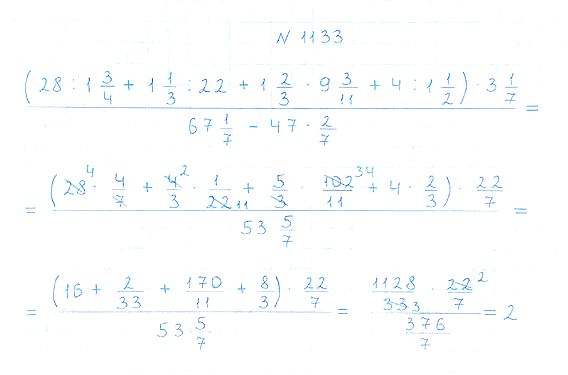 N 1133
(28 : 1 3/4 + 1 1/3 : 22 + 1 2/3 · 9 3/11 + 4 : 1 1/2) · 3 1/7 =
67 1/7 - 47 · 2/7
= (28 4 · 4/7 + 4 2/3 · 1/22 11 + 5/3 · 102 34/11 + 4 · 2/3) · 22/7 =
53 5/7
= (16 + 2/33 + 170/11 + 8/3) · 22/7 = 1128/33 3 · 22 2/7 = 2
53 5/7
376/7